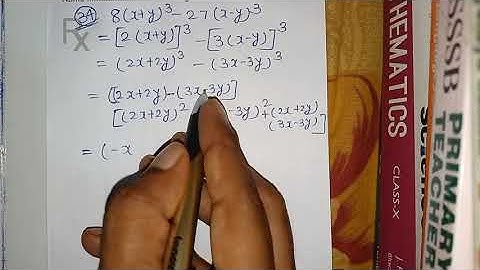 34 8(x+y)³ - 27(x-y)³
= [2(x+y)]³ - [3(x-y)]³
= (2x+2y)³ - (3x-3y)³
= [(2x+2y)-(3x-3y)]
[(2x+2y)² -3y)²+(2x+2y)
(3x-3y)]
= (-x
Rx
MATHEMATICS
CLASS-X
SSSB
PRIMARY
TEACHER